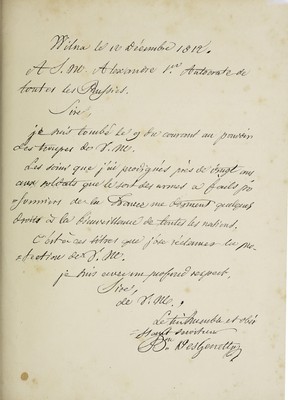 Wilna le 10 Décembre 1812.
A S. M. Alexandre 1er Autocrate de
toutes les Russies.
Sire,
je suis tombé le 9 du courant au pouvoir
des troupes de V. M.
Les soins que j'ai prodigués près de vingt ans
aux soldats que le sort des armes a faits pri-
sonniers de la France me donnent quelques
droits à la bienveillance de toutes les nations.
C'est à ces titres que j'ose réclamer la pro-
tection de V. M.
je suis avec un profond respect,
Sire,
de V. M.,
Le très humble et obéi-
ssant serviteur
Bon DesGenettes